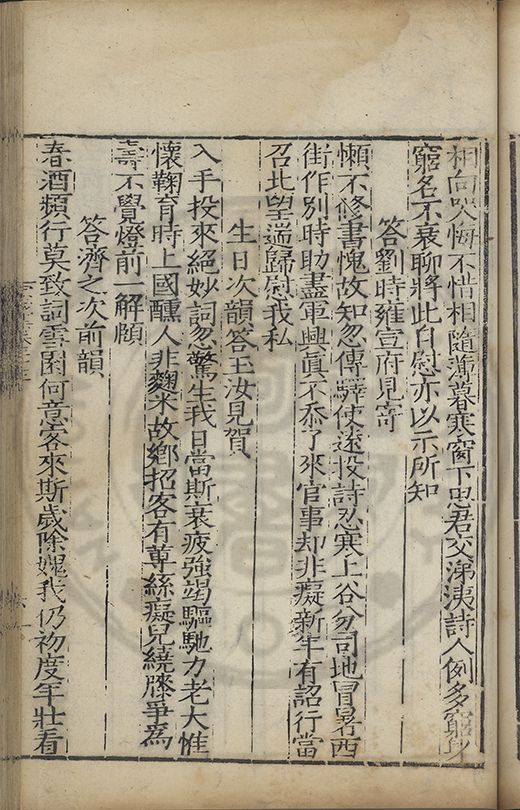 相向哭悔不惜相隨薄暮寒窗下思君交涕洟詩人例多窮身
窮名不衰聊將此自慰亦以示所知
答劉時雍宣府見寄
懶不修書愧故知忽傳驛使遠投詩忍寒上谷分司地冒暑西
街作別時助盡軍興眞不忝了來官事却非癡新年有詔行當
召北望遄歸慰我私
生日次韻答王汝見賀
入手投來絕妙詞忽驚生我日當斯衰疲強竭驅馳力老大惟
懷鞠育時上國醺人非麴米故鄉招客有蓴絲癡兒繞膝爭爲
壽不覺燈前一解頤
答濟之次前韻
春酒頻行莫致詞雪困何意客來斯歲除媿我仍初度年壯看